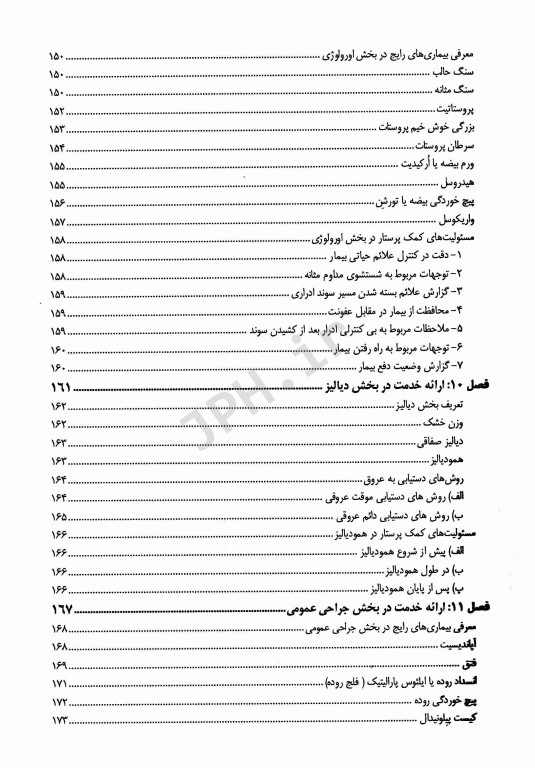 معرفی بیماری‌های رایج در بخش اورولوژی ۱۵۰
سنگ حالب ۱۵۰
سنگ مثانه ۱۵۰
پروستاتیت ۱۵۲
بزرگی خوش خیم پروستات ۱۵۳
سرطان پروستات ۱۵۴
ورم بیضه یا اُرکیدیت ۱۵۵
هیدروسل ۱۵۵
پیچ خوردگی بیضه یا تورشِن ۱۵۶
واریکوسل ۱۵۷
مسئولیت‌های کمک پرستار در بخش اورولوژی ۱۵۸
۱- دقت در کنترل علائم حیاتی بیمار ۱۵۸
۲- توجهات مربوط به شستشوی مداوم مثانه ۱۵۸
۳- گزارش علائم بسته شدن مسیر سوند ادراری ۱۵۹
۴- محافظت از بیمار در مقابل عفونت ۱۵۹
۵- ملاحظات مربوط به بی کنترلی ادرار بعد از کشیدن سوند ۱۵۹
۶- توجهات مربوط به راه رفتن بیمار ۱۶۰
۷- گزارش وضعیت دفع بیمار ۱۶۰
فصل ۱۰: ارائه خدمت در بخش دیالیز ۱۶۱
تعریف بخش دیالیز ۱۶۲
وزن خشک ۱۶۲
دیالیز صفاقی ۱۶۳
همودیالیز ۱۶۳
روش‌های دستیابی به عروق ۱۶۴
الف) روش های دستیابی موقت عروقی ۱۶۴
ب) روش های دستیابی دائم عروقی ۱۶۵
مسئولیت‌های کمک پرستار در همودیالیز ۱۶۶
الف) پیش از شروع همودیالیز ۱۶۶
ب) در طول همودیالیز ۱۶۶
پ) پس از پایان همودیالیز ۱۶۶
فصل ۱۱: ارائه خدمت در بخش جراحی عمومی ۱۶۷
معرفی بیماری‌های رایج در بخش جراحی عمومی ۱۶۸
آپاندیسیت ۱۶۸
فتق ۱۶۹
انسداد روده یا ایلئوس پارالیتیک ( فلج روده) ۱۷۱
پیچ خوردگی روده ۱۷۲
کیست پیلونیدال ۱۷۳
JPH.ir